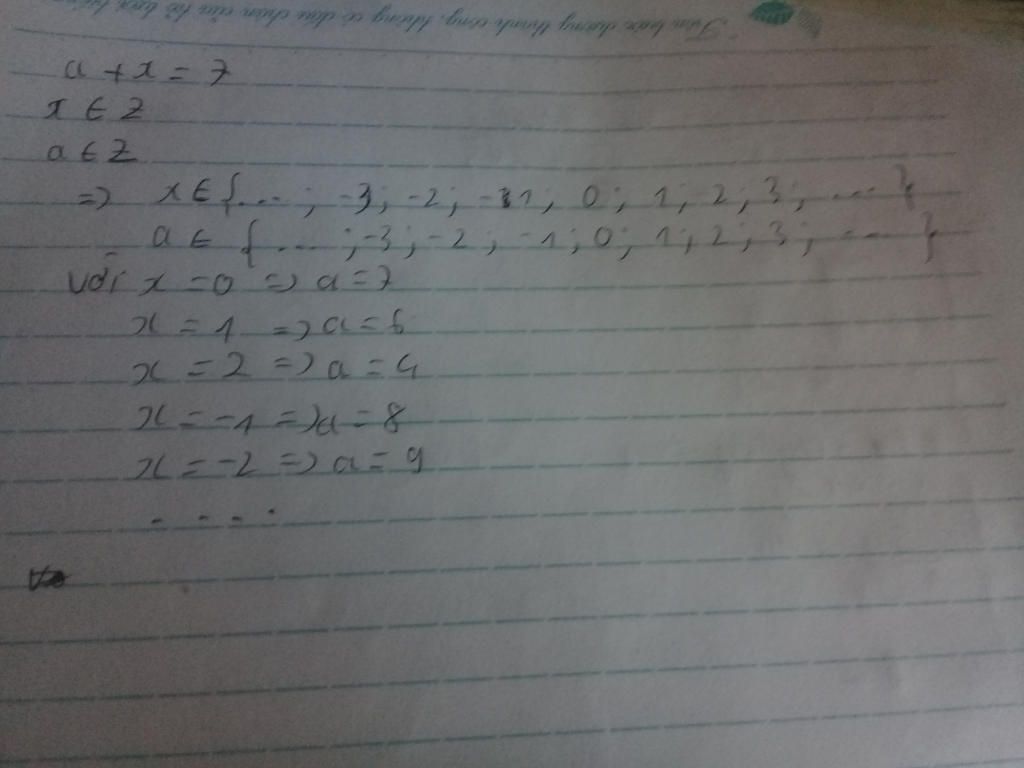 a + x = 7
x ∈ Z
a ∈ Z
=> x ∈ {...; -3; -2; -1; 0; 1; 2; 3; ...}
a ∈ {...; -3; -2; -1; 0; 1; 2; 3; ...}
Với x = 0 => a = 7
x = 1 => a = 6
x = 2 => a = 4
x = -1 => a = 8
x = -2 => a = 9
....